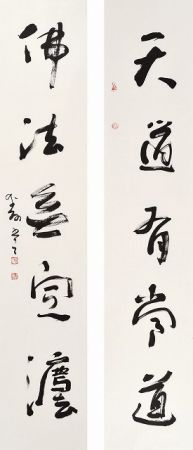 天道有常道
佛法無定灋